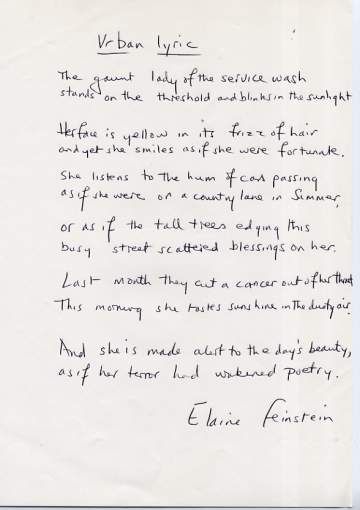 Urban lyric
The gaunt lady of the service wash
stands on the threshold and blinks in the sunlight
Her face is yellow in its frizz of hair
and yet she smiles as if she were fortunate.
She listens to the hum of cars passing
as if she were on a country lane in Summer,
or as if the tall trees edging this
busy street scattered blessings on her.
Last month they cut a cancer out of her throat
This morning she tastes sunshine in the dusty air.
And she is made alert to the day's beauty,
as if her terror had wakened poetry.
Elaine Feinstein